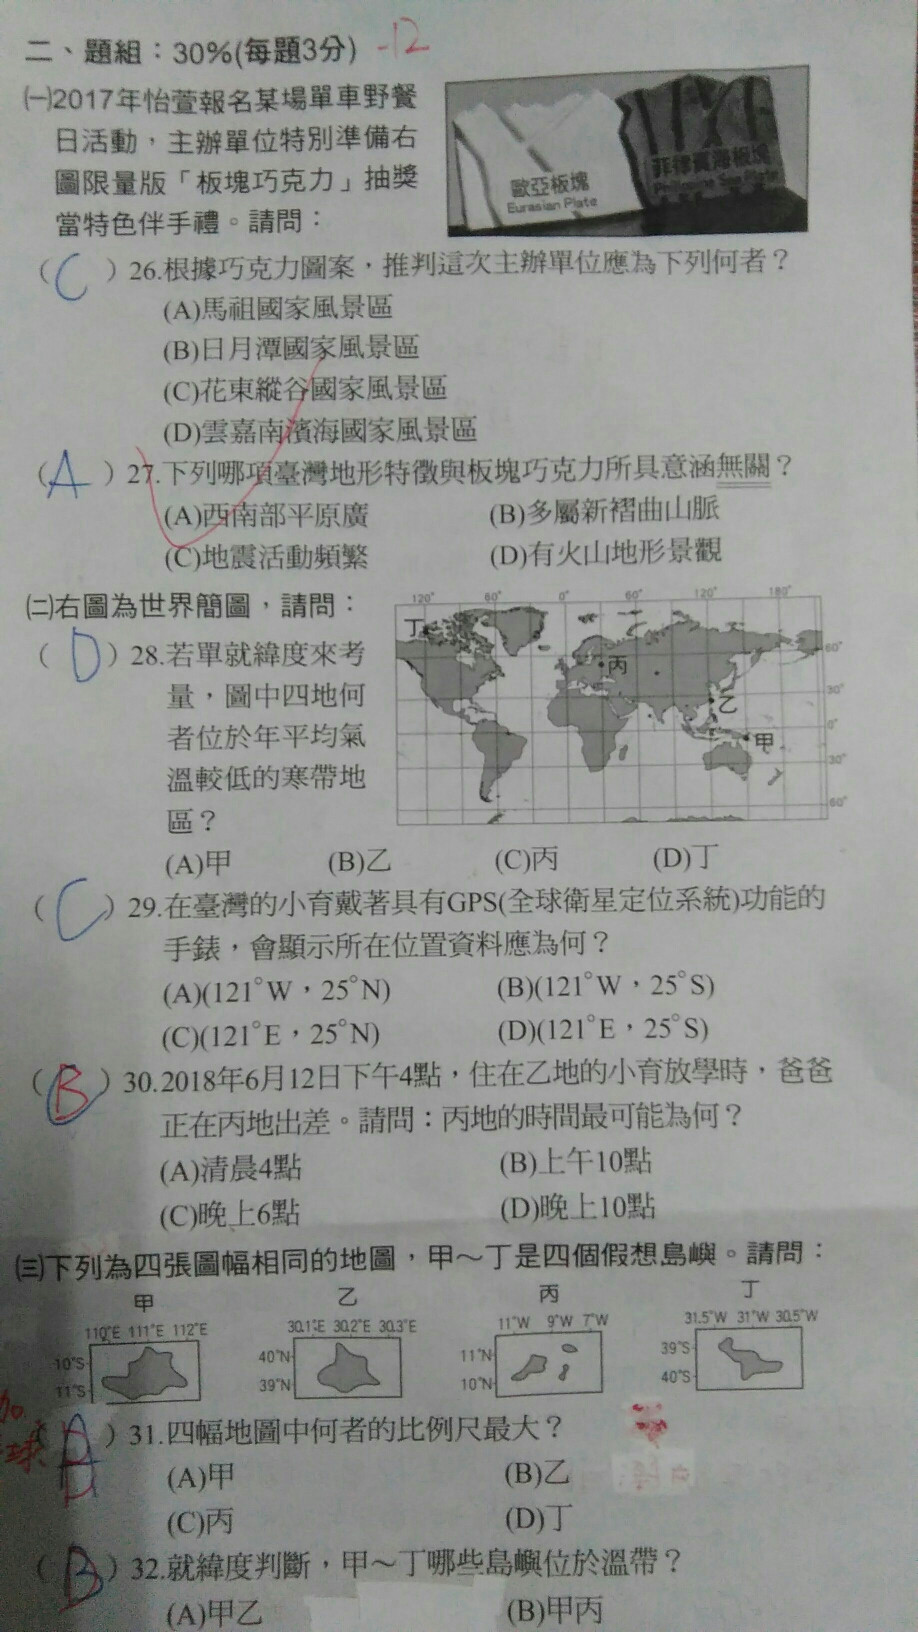 二、題組：30%(每題3分) -12
㈠2017年怡萱報名某場單車野餐
日活動，主辦單位特別準備右
圖限量版「板塊巧克力」抽獎
當特色伴手禮。請問：
歐亞板塊
Eurasian Plate
菲律賓海板塊
Philippine Sea Plate
( C )26.根據巧克力圖案，推判這次主辦單位應為下列何者？
(A)馬祖國家風景區
(B)日月潭國家風景區
(C)花東縱谷國家風景區
(D)雲嘉南濱海國家風景區
( A )27.下列哪項臺灣地形特徵與板塊巧克力所具意涵無關？
(A)西南部平原廣 (B)多屬新褶曲山脈
(C)地震活動頻繁 (D)有火山地形景觀
㈡右圖為世界簡圖，請問：
120° 60° 0° 60° 120° 180°
丁
60°
丙
30°
乙
0°
甲
30°
60°
( D )28.若單就緯度來考
量，圖中四地何
者位於年平均氣
溫較低的寒帶地
區？
(A)甲 (B)乙 (C)丙 (D)丁
( C )29.在臺灣的小育戴著具有GPS(全球衛星定位系統)功能的
手錶，會顯示所在位置資料應為何？
(A)(121°W，25°N) (B)(121°W，25°S)
(C)(121°E，25°N) (D)(121°E，25°S)
( B )30.2018年6月12日下午4點，住在乙地的小育放學時，爸爸
正在丙地出差。請問：丙地的時間最可能為何？
(A)清晨4點 (B)上午10點
(C)晚上6點 (D)晚上10點
㈢下列為四張圖幅相同的地圖，甲～丁是四個假想島嶼。請問：
甲 乙 丙 丁
110°E 111°E 112°E 30.1°E 30.2°E 30.3°E 11°W 9°W 7°W 31.5°W 31°W 30.5°W
10°S 40°N 11°N 39°S
11°S 39°N 10°N 40°S
)31.四幅地圖中何者的比例尺最大？
(A)甲 (B)乙
(C)丙 (D)丁
( B )32.就緯度判斷，甲～丁哪些島嶼位於溫帶？
(A)甲乙 (B)甲丙